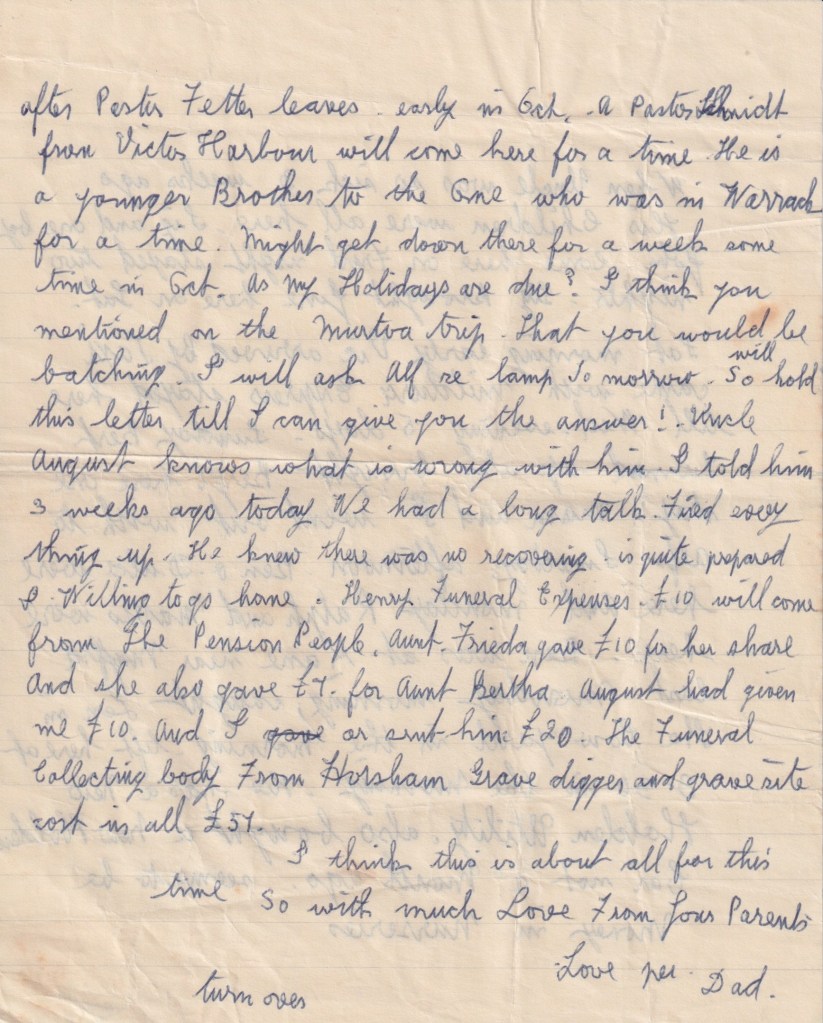 after Pastor Fetter leaves. early in Oct. . A Pastor Schmidt
from Victor Harbour will come here for a time. He is
a younger Brother to the One who was in Warrack
for a time. Might get down there for a week some
time in Oct. As my Holidays are due? I think you
mentioned on the Murtoa trip. That you would be
batching. I will ask Alf re lamp To morrow. So will hold
this letter till I can give you the answer! Uncle
August knows what is wrong with him. I told him
3 weeks ago today We had a long talk. Fixed every
thing up. He knew there was no recovering. is quite prepared
& Willing to go home. Henry Funeral Expenses. £10 will come
from The Pension People. Aunt. Frieda gave £10 for her share
And she also gave £7. for Aunt Bertha August had given
me £10. And I gave or sent him £20. The Funeral
Collecting body From Horsham Grave digger and grave site
cost in all £57.
I think this is about all for this
time So with much Love From Your Parents
Love per. Dad.
turn over